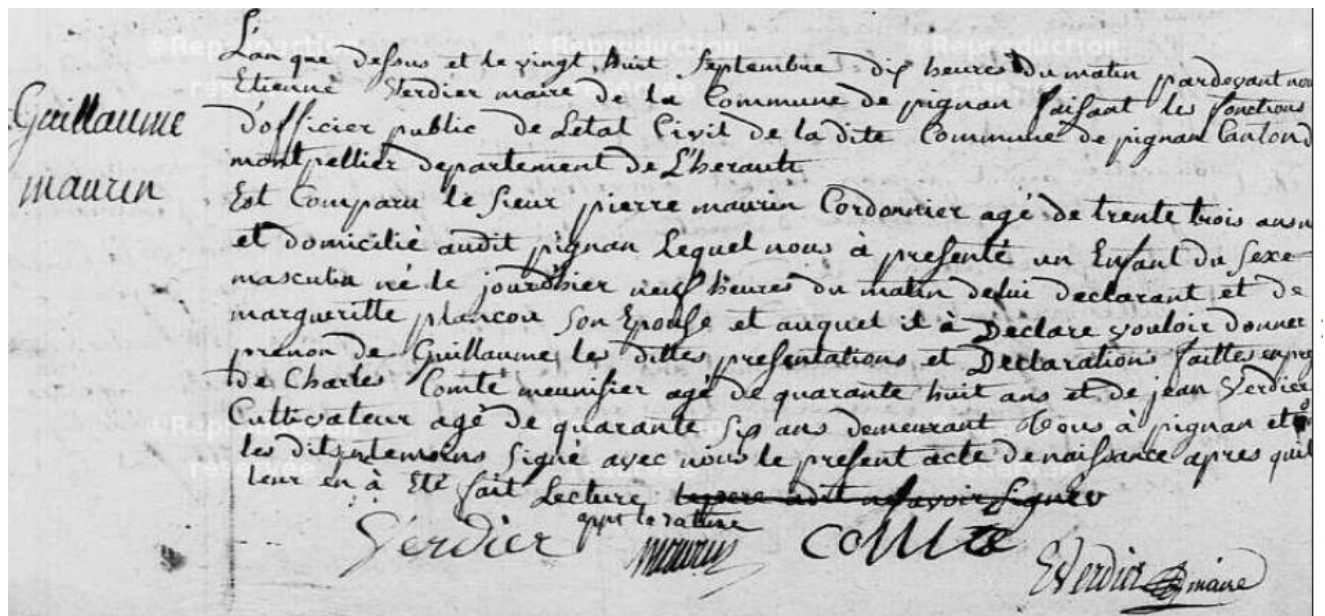 L'an que dessus et le vingt huit Septembre dix heures du matin pardevant nou
Guillaume
maurin
Etienne Verdier maire de la Commune de pignan faisant les fonctions
d'officier public de Letat Civil de la dite Commune de pignan Canton d
montpellier departement de L'herault
Est Comparu le Sieur pierre maurin Cordonnier agé de trente trois ans n
et domicilié audit pignan Lequel nous à presenté un Enfant du Sexe
masculin né le jourdhier neuf heures du matin delui declarant et de
margueritte plancon Son Epouse et auquel il à Declare vouloir donner
prenon de Guillaume, les dittes presentations et Declarations faittes en pre
de Charles Comte meunisier agé de quarante huit ans et de jean Verdier
Cultivateur agé de quarante six ans demeurant tous à pignan et
les dits temoins Signé avec nous le present acte de naissance apres quil
leur en à Eté fait Lecture le pere a dit ne savoir Signer
Verdier appt la rature maurin Comte EVerdier maire